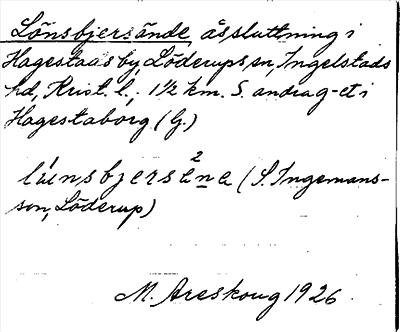 Lönsbjersände åssluttning i
Hagestads by, Löderups sn, Ingelstads
hd, Krist. l., 1½ km. S. andrag-et i
Hagestaborg (G.)
2
bjersɛna (S. Ingemans-
son, Löderup)
M. Areskoug 1926.